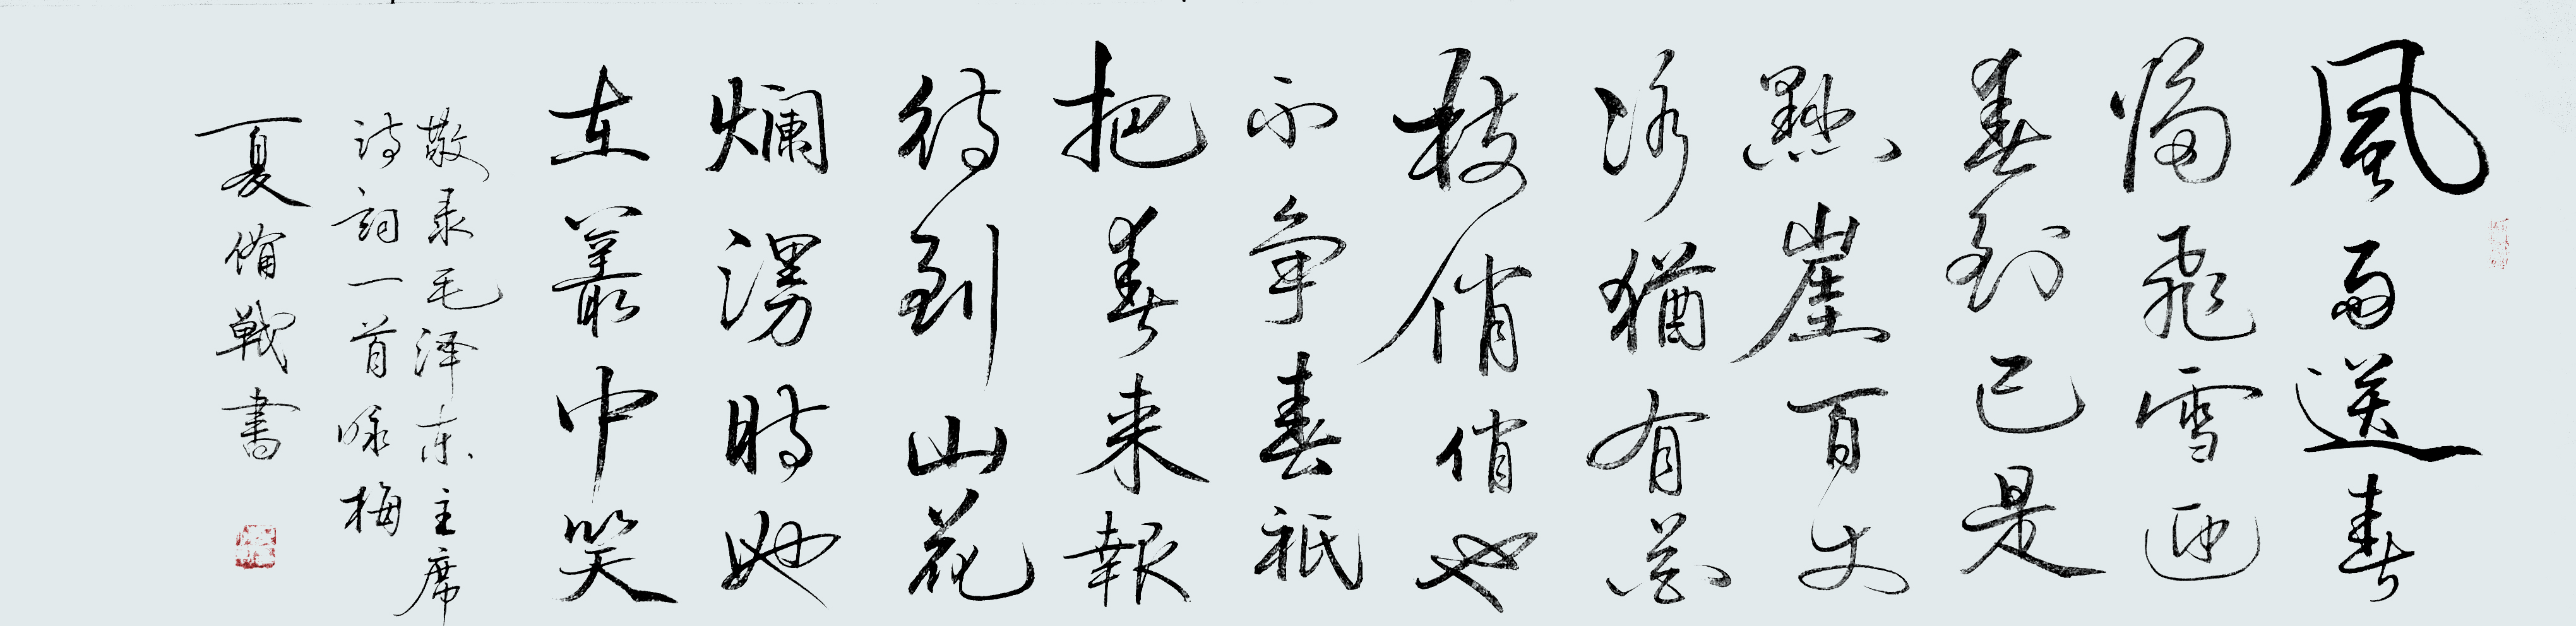 風雨送春
歸飛雪迎
春到已是
懸崖百丈
冰猶有花
枝俏俏也
不争春祇
把春来報
待到山花
爛漫時她
在叢中笑
敬录毛泽东主席
诗词一首咏梅
夏備戰書